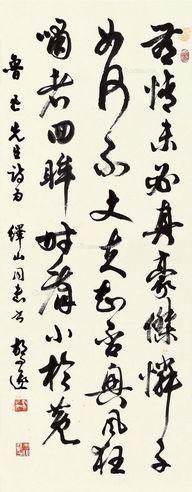 無情未必真豪傑憐子
如何不丈夫知否興風狂
嘯者回眸時看小於菟
魯迅先生詩為 繹山同志書 胡問遂